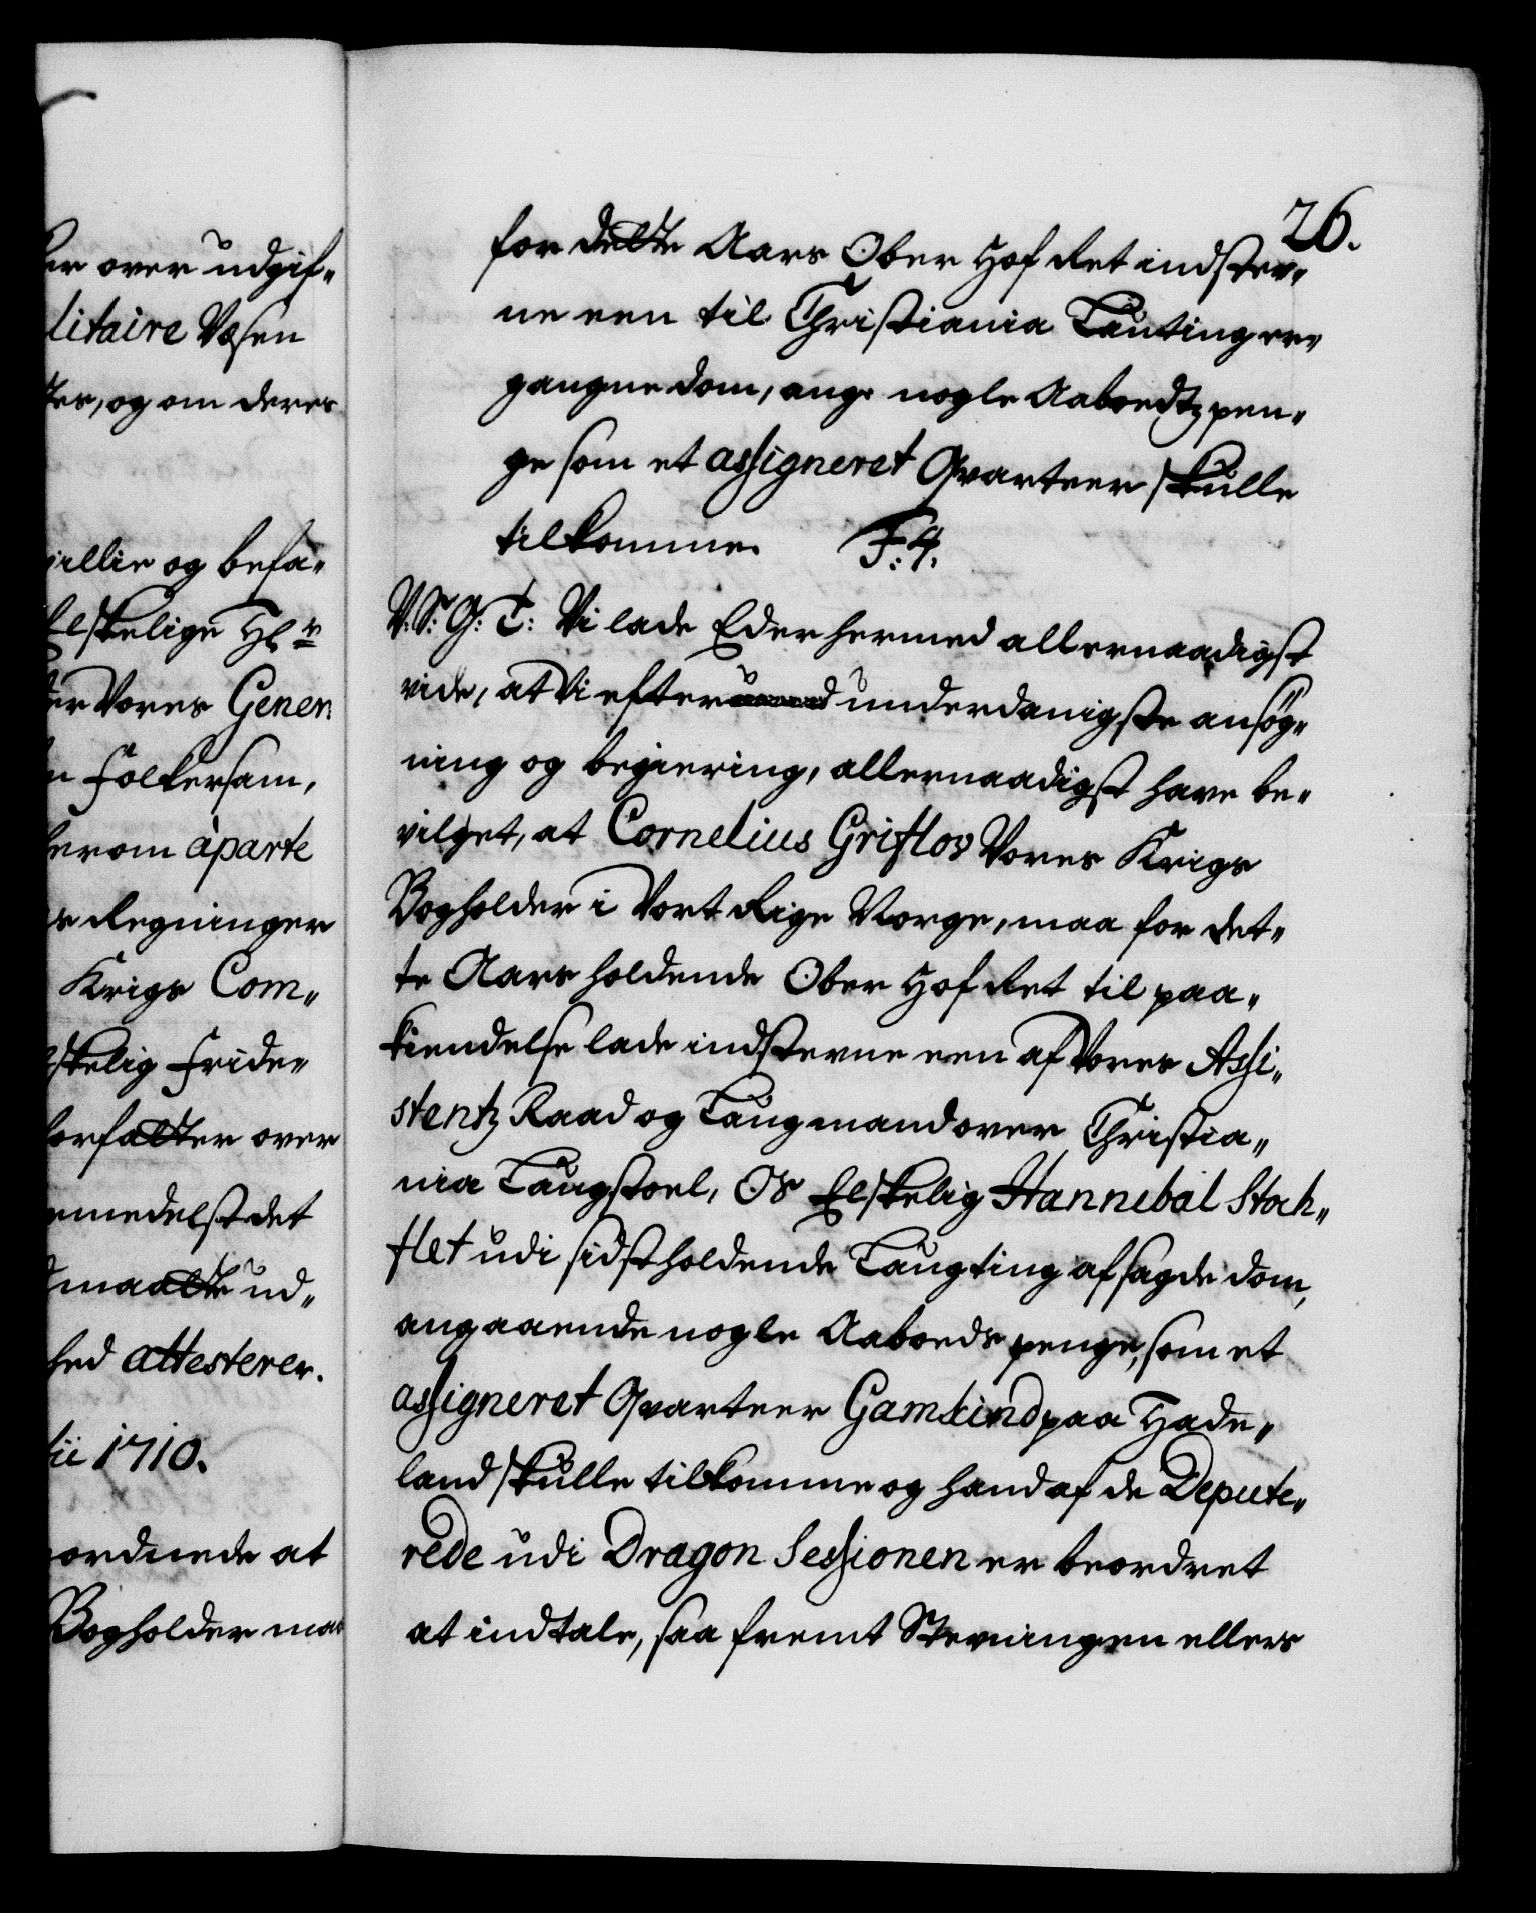 er over udgif„
litaire Væsen
tes, og om deres
villie og befa„
Elskelige Hl r
ter Vores Gener
n Folkersam,
herom àparte
s Regninger
Krigs Com„
lskelig Fride„
forfatter over
emedelst det
maatte ud„
hed attesterer.
lii 1710.
ordnede at
Bogholder maa
26.
for dette Aars Ober Hof Ret indstev„
ne een til Christiania Lauting er„
gangne dom, ang. nogle Aaboedtz pen„
ge som et assigneret Qvarteer skulle
tilkomme. F: 4.
V: S: G: T: Vi lade Eder hermed allernaadigst
vide, at Vi efter underdanigste ansøg„
ning og begiering, allernaadigst have be„
vilget, at Cornelius Griflov Vores Krigs
Bogholder i Vort Rige Norge, maa for det„
te Aars holdende Ober Hof Ret til paa„
kiendelse lade indstevne een af Vores Assi„
stentz Raad og Laugmand over Christia„
nia Laugstoel, Os Elskelig Hannebal Stock„
flet udi sidst holdende Laugting afsagde dom,
angaaende nogle Aaboeds penge, som et
assigneret Qvarteer Gamkind paa Hade„
land skulle tilkomme og hand af de Depute„
rede udi Dragon Sessionen er beordret
at indtale, saa fremt Stevningen ellers